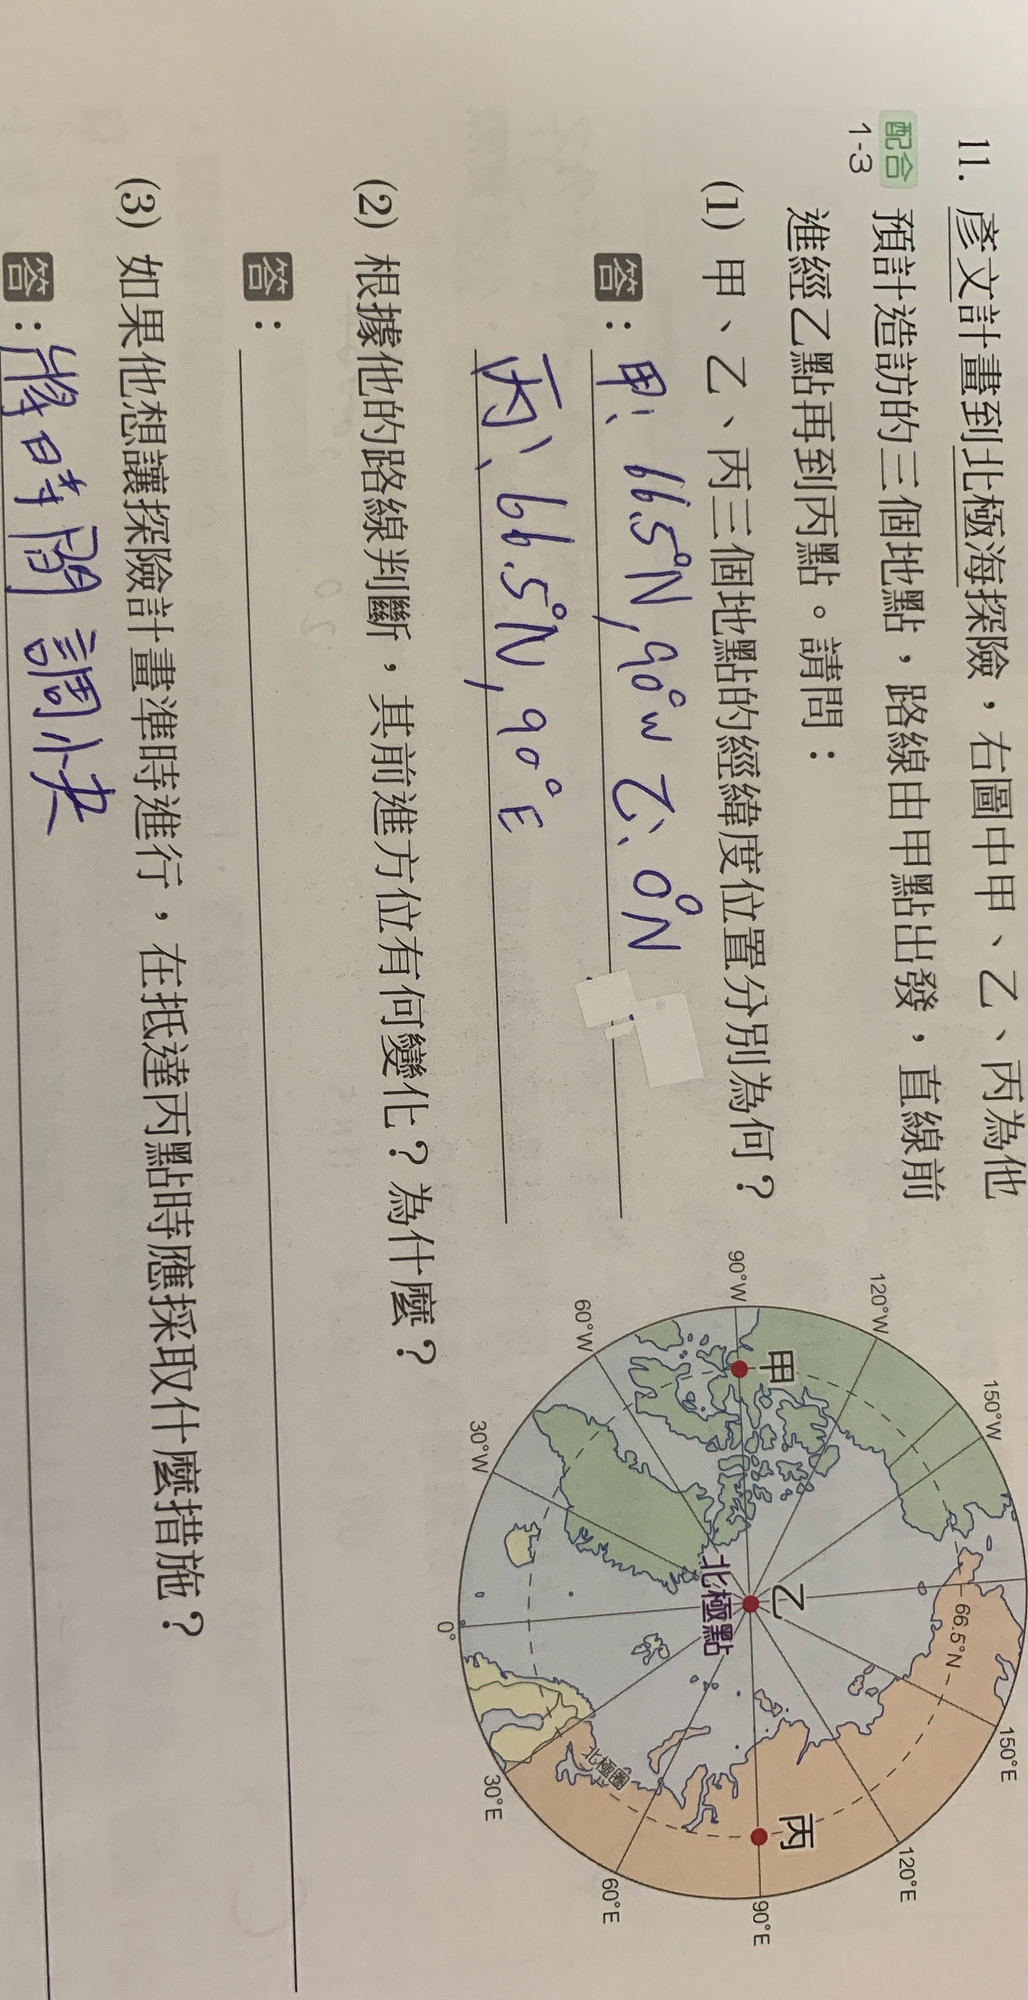 11. 彥文計畫到北極海探險，右圖中甲、乙、丙為他
配合
1-3
預計造訪的三個地點，路線由甲點出發，直線前
進經乙點再到丙點。請問：
(1) 甲、乙、丙三個地點的經緯度位置分別為何？
答：甲：66.5°N, 90°W 乙、0°N
丙、66.5°N, 90°E
(2) 根據他的路線判斷，其前進方位有何變化？為什麼？
答：
(3) 如果他想讓探險計畫準時進行，在抵達丙點時應採取什麼措施？
答：將時間調快
150°W
120°W
90°W
60°W
30°W
0°
30°E
60°E
90°E
120°E
150°E
甲
乙
丙
北極點
66.5°N
北極圈